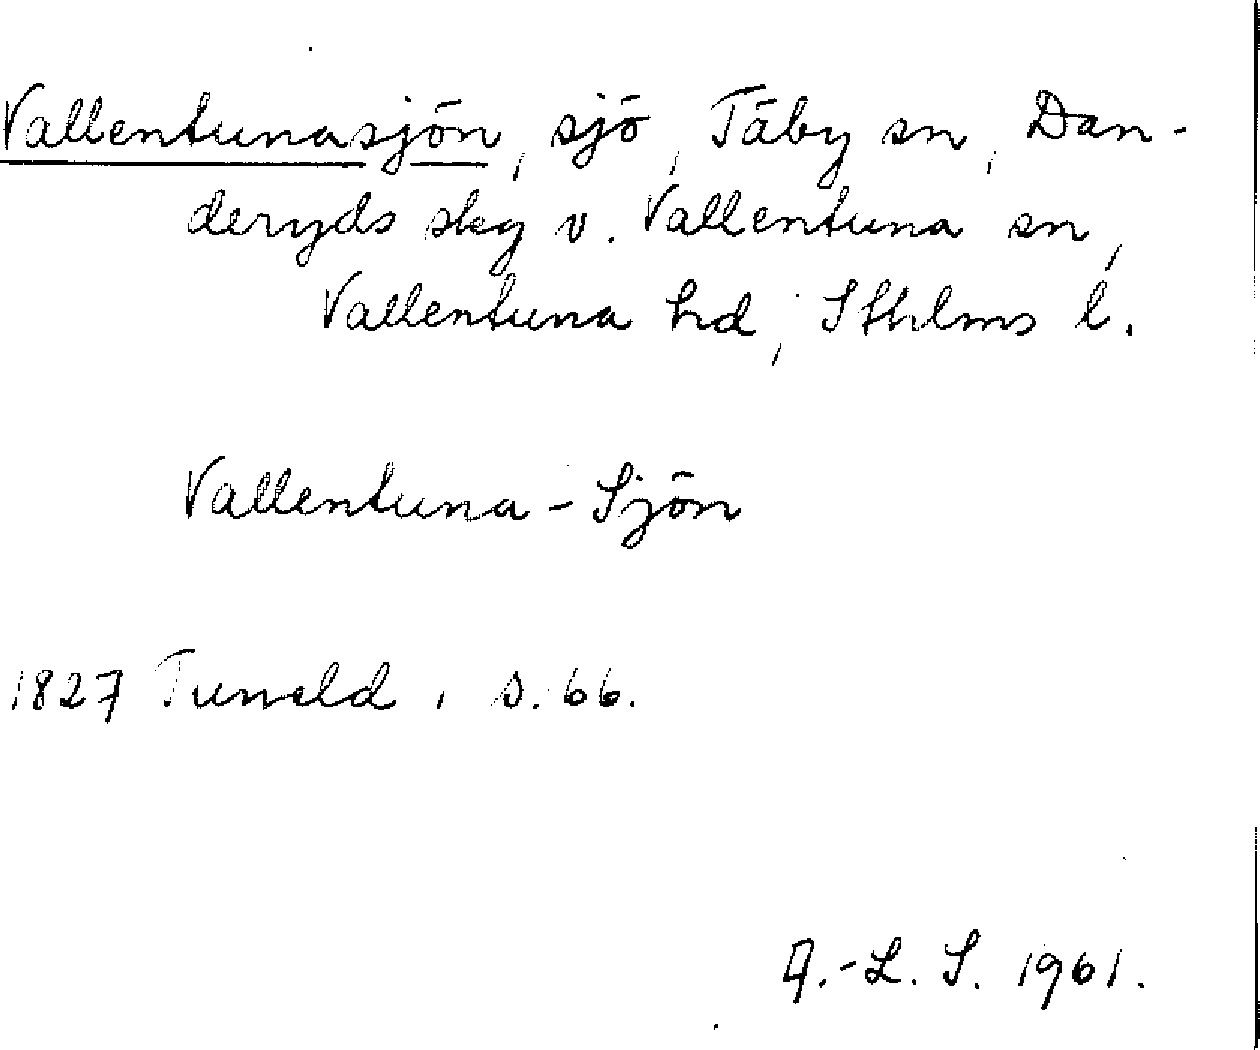 Vallentunasjön, sjö, Täby sn, Dan-
deryds slag o. Vallentuna sn,
Vallentuna hd, Sthlms l.
Vallentuna-Sjön
1827 Tuneld, s. 66.
A.-L. S. 1961.